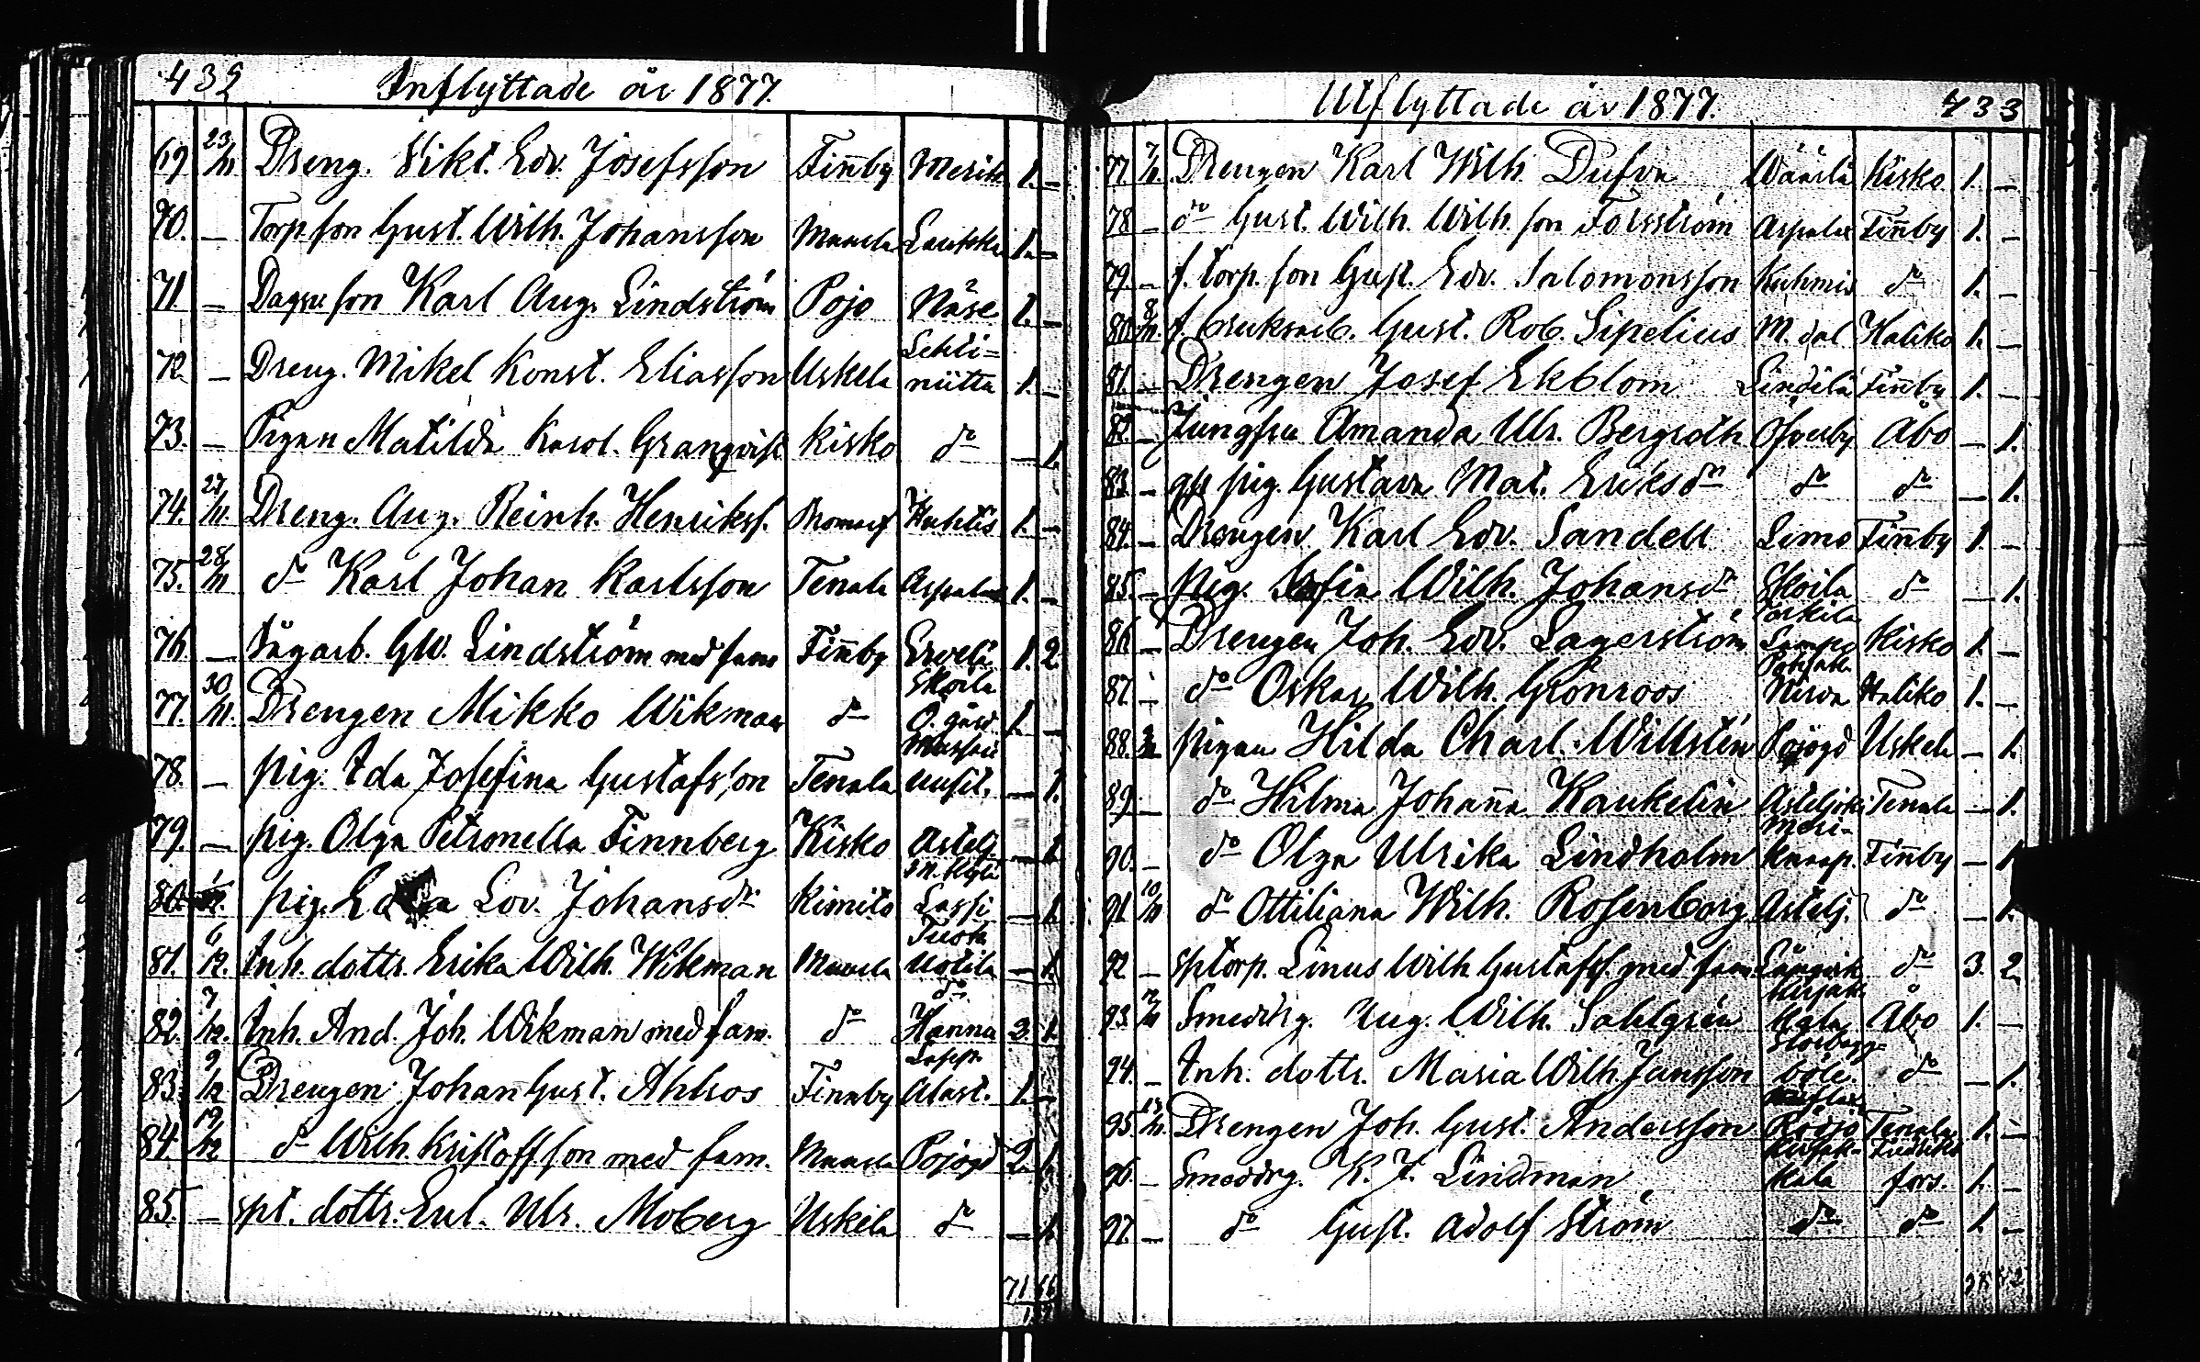 432
Inflyttade år 1877.
69. 23/11 Dreng. Vikt. Edv. Josefsson Finnby 1. –
70. – Torp. son Gust. Wilh. Johansson Muurla 1. –
71 – Dagsv son Karl Aug. Lindström Pojo Näse 1. –
72. – Dreng. Mikel Konst. Eliasson Uskela Lehti=
niitta 1. –
73. – Pigan Matilda Karol. Granqvist Kisko do – 1.
74. 27/11. Dreng. Aug. Reinh. Henrikss. Bromarf 1. –
75. 28/11 do Karl Johan Karlsson Tenala 1. –
76. – Sågarb. G.W. Lindström med fam Finnby 1. 2.
77. 30/11. Drengen Mikko Wikman do Skoila
Ö. gård 1. –
78. – pig. Ida Josefina Gustafsson Tenala – 1.
79. – pig. Olga Petronella Finnberg Kisko Astelj – 1.
80. pig. Lov. Johansdr Kimito Lassi – 1.
81. 6/12. Inh. dottr. Erika Wilh. Wikman Muurla – 1.
82. 7/12. Inh. And. Joh. Wikman med fam. do Hanna 3. 1.
83. 9/12 Drengen Johan Gust. Ahlros Finnby 1. –
84. 19/12 do Wilh. Kristoffsson med fam. Muurla Pojogd 2. 1.
85. – spt. dottr. Eul. Ulr. Moberg Uskela do – 1.
71 66
Utflyttade år 1877.
433
77. 7/11. Drengen Karl Wilh. Dufva Wäärlä Kisko 1. –
78 – do Gust. Wilh. Wilh. son Forsström Finnby 1. –
79. – f. torp. son Gust. Edv. Salomonsson Kuhmis do 1. –
80. f. bruksarb. Gust. Rob. Sipelius M. dal Haliko 1. –
81. – Drengen Josef Ekblom Lindilä Finnby 1. –
82. – Jungfru Amanda Ulr. Bergroth Öfverby Åbo – 1.
83. – pig. Gustava Mat. Eriksdr do do – 1.
84. – Drengen Karl Edv. Sandell Limo Finnby 1. –
85. – pig. Sofia Wilh. Johansdr Skoila do – 1.
86. – Drengen Joh. Edv. Lagerström Kisko 1. –
87. – do Oskar Wilh. Grönroos Haliko 1. –
88. pigan Hilda Charl. Willstén Pojogd Uskela – 1.
89. – do Hilma Johanna Kaukelin Asteljoki Tenala – 1.
90. – do Olga Ulrika Lindholm Finnby – 1.
91. 10/11 do Ottiliana Wilh. Rosenborg Astelj. do – 1.
92 – sptorp. Linus Wilh Gustafss. med fam. Långvik do 3. 2.
93. 12/11 Smeddrg. Aug. Wilh. Sahlgrén Åbo 1. –
94. – Inh. dottr. Maria Wilh. Jansson böle. do – 1.
95. 13/11. Drengen Joh. Gust. Andersson Tenala 1. –
96. – Smeddrg. K. F. Lindman Kirjak-
kala Fredriks
fors. 1. –
97. – do Gust. Adolf Ström do do 1. –